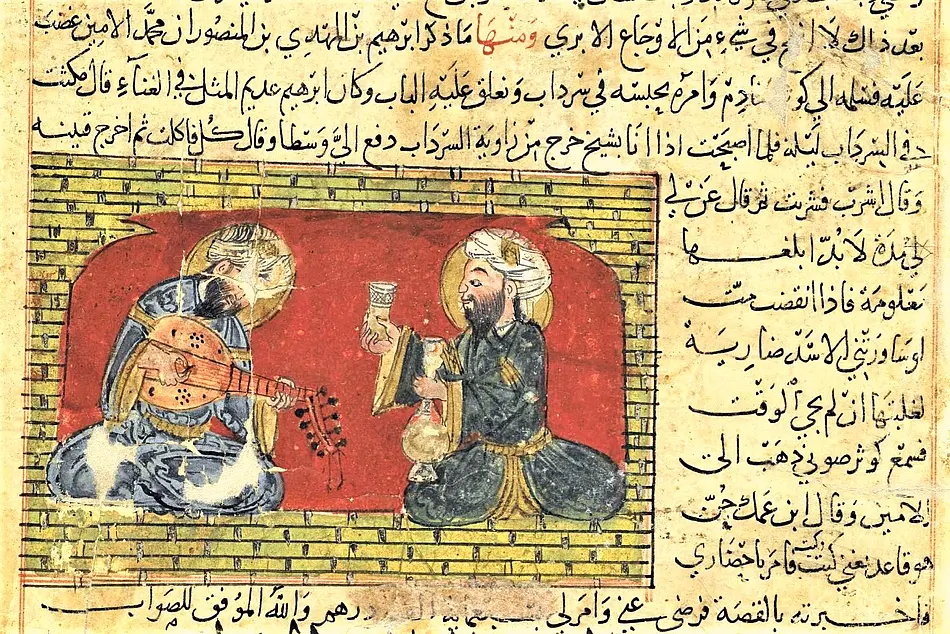 بعد ذاك لا في شيء من الاوجاع الابري ومنها ما ذكر ابرهيم بن المهدي بن المنصور ان محمد الامين غضب
عليه فسلمه الي كوثر خادم وامره بحبسه في سرداب وتغلق عليه الباب وكان ابرهيم عديم المثل في الغناء قال مكثت
في السرداب ليلة فلما اصبحت اذا انا بشيخ خرج من زاوية السرداب دفع الي وسطا وقال كل فاكلت ثم اخرج قنينه
وقال اشرب فشربت ثم قال غن لي
لي مدة لا بد ابلغها
معلومة فاذا انقضت مت
لو ساورتني الاسد ضارية
لغلبتها ان لم يجي الوقت
فسمع كوثر صوتي فذهب الى
الامين وقال ابن عمك جن
هو قاعد يغني كيت كيت فامر باحضاري
فاخبرته بالقصة فرضي عني وامر لي درهم والله الموفق للصواب